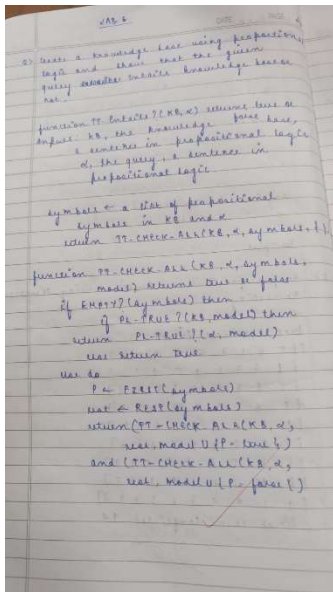 LAB 6
DATE PAGE
Create a knowledge base using propositional
logic and show that the given
query entails knowledge base or
not.
function TT-Entails?(KB, α) returns true or
inputs KB, the knowledge base,
a sentence in propositional logic
α, the query, a sentence in
propositional logic
symbols ← a list of propositional
symbols in KB and α
return TT-CHECK-ALL(KB, α, symbols, { }
function TT-CHECK-ALL(KB, α, symbols,
model) returns true or false
if EMPTY?(symbols) then
if PL-TRUE?(KB, model) then
return PL-TRUE?(α, model)
else return true
else do
P ← FIRST(symbols)
rest ← REST(symbols)
return (TT-CHECK-ALL(KB, α,
rest, model ∪ {P = true})
and (TT-CHECK-ALL(KB, α,
rest, model ∪ {P = false})